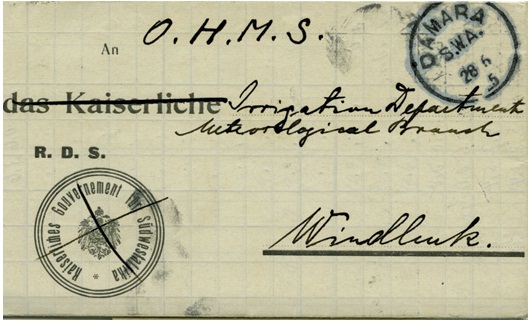 O. H. M. S.
An
DAMARA
S.W.A.
28 6
5
das Kaiserliche Irrigation Department
Meteorological Branch
R. D. S.
Kaiserliches Gouvernement für Südwestafrika
Windhuk.